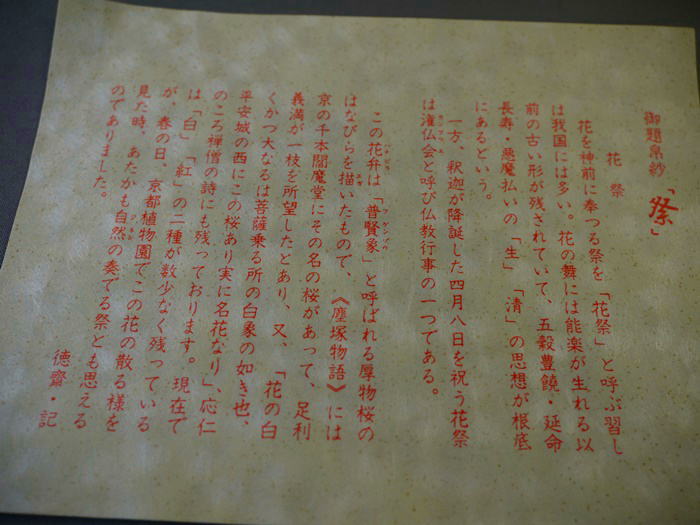 御題帛紗「祭」
花祭
花を神前に奉つる祭を「花祭」と呼ぶ習し
は我国には多い。花の舞には能楽が生れる以
前の古い形が残されていて、五穀豊饒・延命
長寿・悪魔払いの「生」「清」の思想が根底
にあるという。
一方、釈迦が降誕した四月八日を祝う花祭
は潅仏会と呼び仏教行事の一つである。
この花弁は「普賢象」と呼ばれる厚物桜の
はなびらを描いたもので、《塵塚物語》には
京の千本閻魔堂にその名の桜があって、足利
義満が一枝を所望したとあり、又、「花の白
くかつ大なるは菩薩乗る所の白象の如き也、
平安城の西にこの桜あり実に名花なり」、応仁
のころ禅僧の詩にも残っております。現在で
は「白」「紅」の二種が数少なく残っている
が、春の日、京都植物園でこの花の散る様を
見た時、あたかも自然の奏でる祭とも思える
のでありました。
徳齋・記